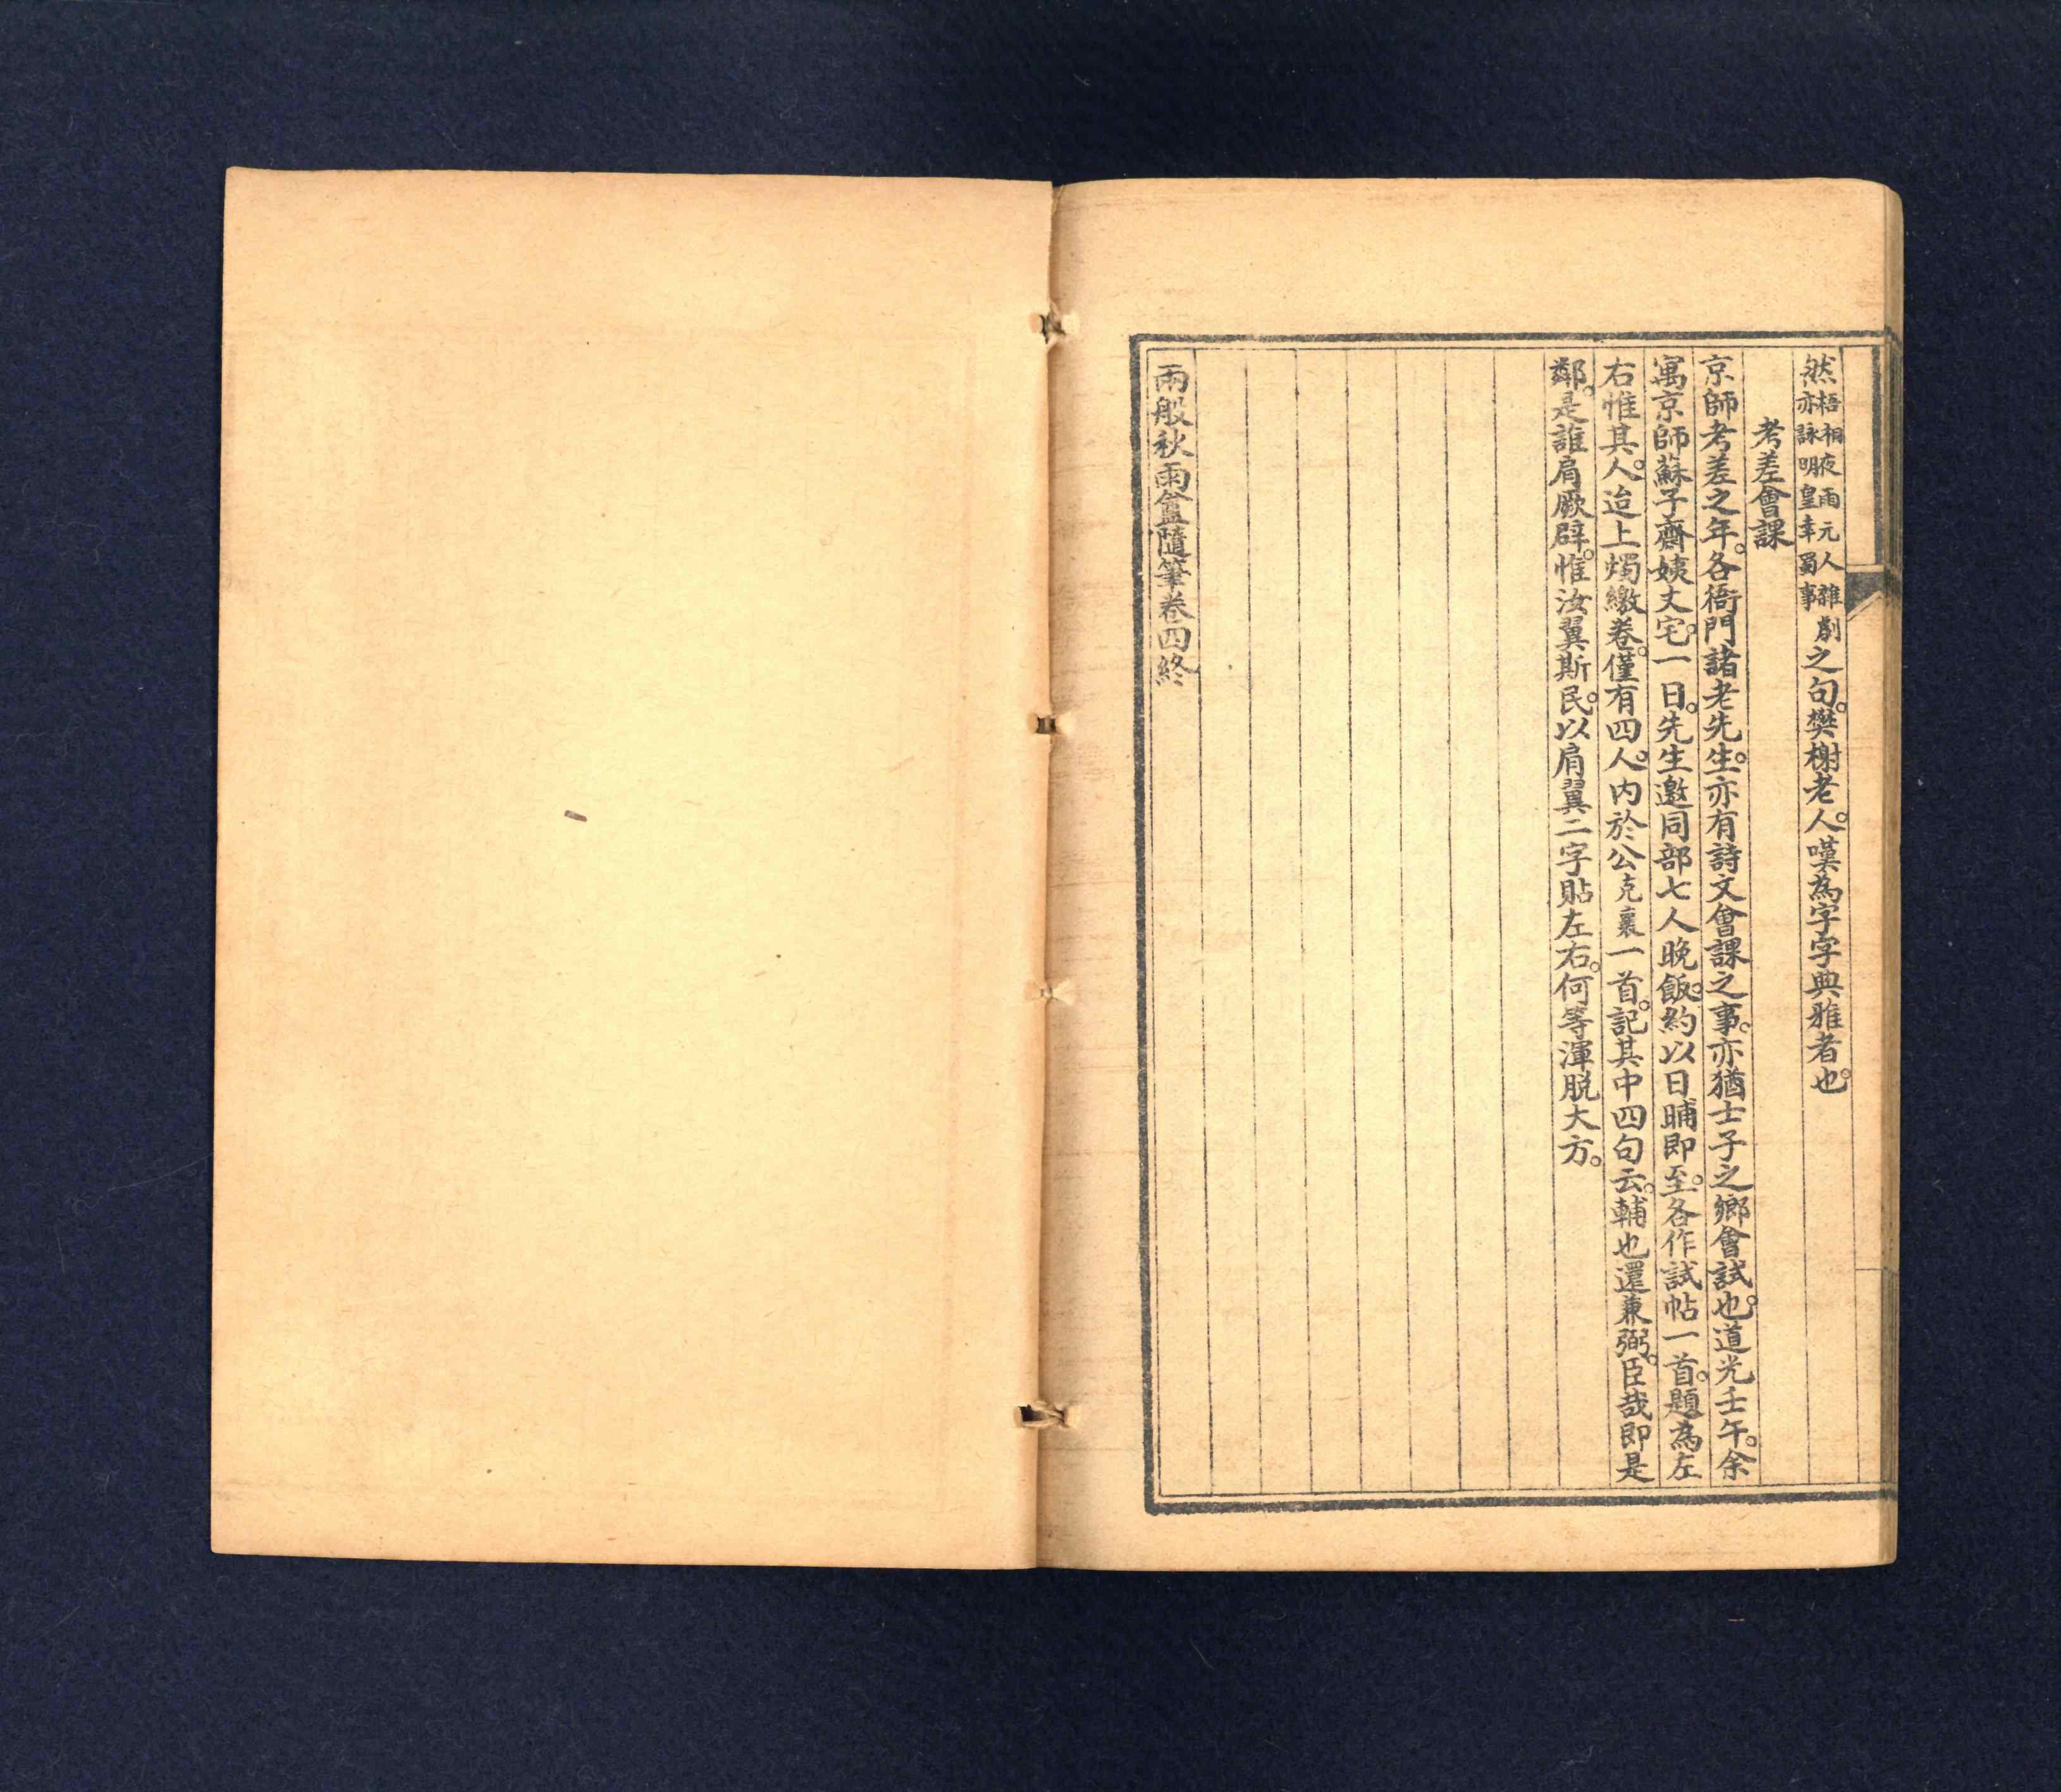 然梧桐夜雨元人雜劇亦詠明皇幸蜀事之句。樊榭老人。嘆為字字典雅者也。
考差會課
京師考差之年。各衙門諸老先生。亦有詩文會課之事。亦猶士子之鄉會試也。道光壬午。余
寓京師蘇子齋姨丈宅。一日。先生邀同部七人晚飯。約以日晡即至。各作試帖一首。題為左
右惟其人。迨上燭繳卷。僅有四人。內於公克襄一首。記其中四句云。輔也還兼弼。臣哉即是
鄰。是誰肩厥辟。惟汝翼斯民。以肩翼二字貼左右。何等渾脫大方。
兩般秋雨盦隨筆卷四終